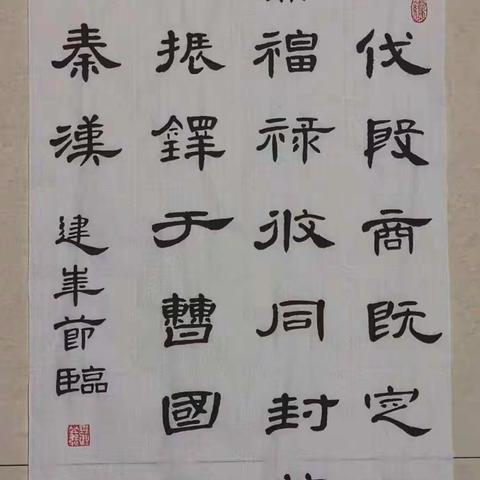 伐殷商既定
福祿攸同封
振鐸于曹國
秦漢
建峯節臨